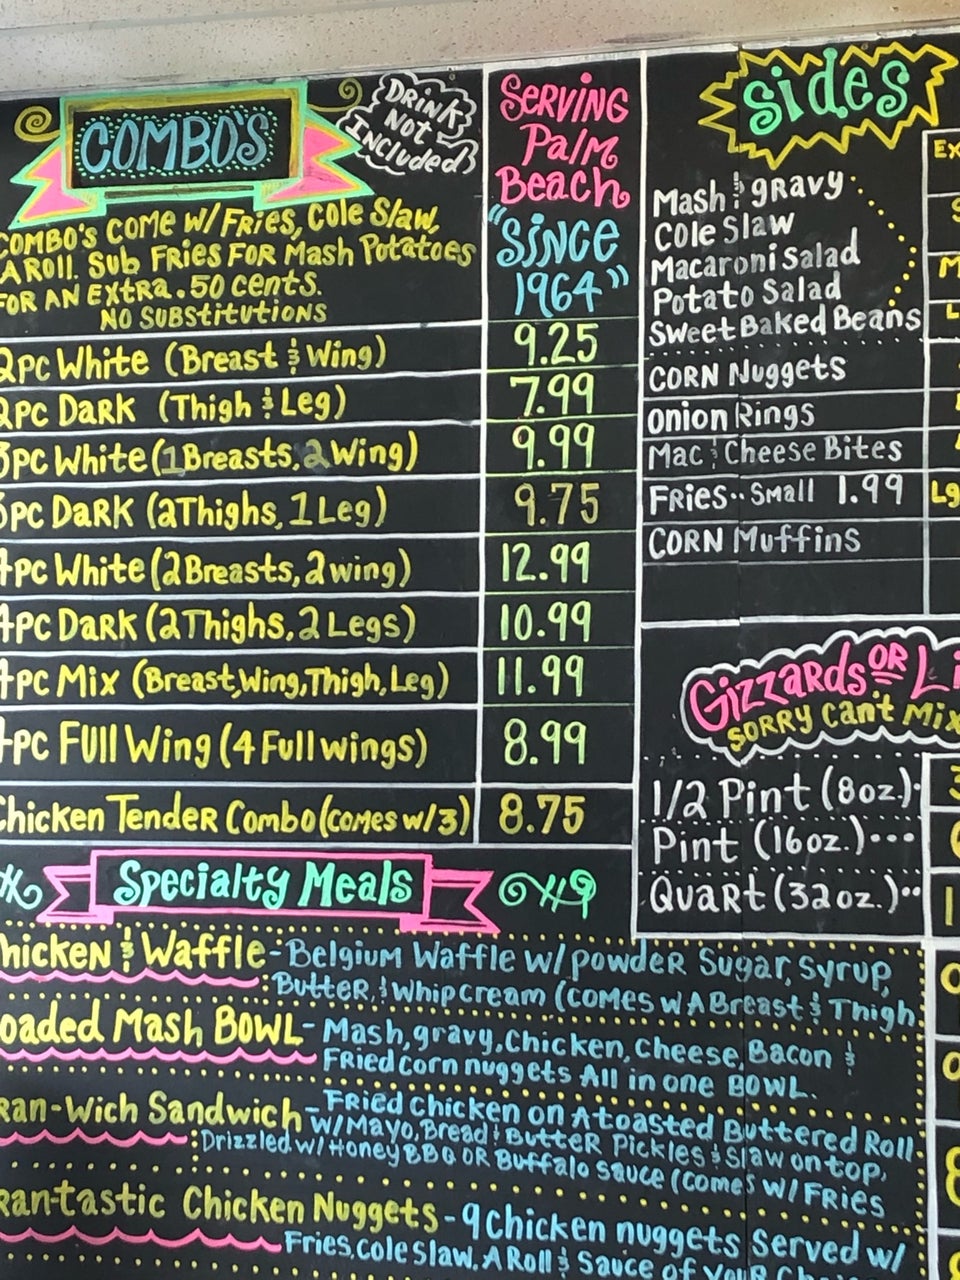 COMBO'S
DRINK
NOT
INCLUDED
COMBO'S COME W/ FRIES, COLE SLAW,
A ROLL. SUB FRIES FOR MASH POTATOES
FOR AN EXTRA .50 CENTS.
NO SUBSTITUTIONS
2PC White (Breast & Wing)
2PC DARK (Thigh & Leg)
PC White (1 Breasts, 2 Wing)
PC DARK (2 Thighs, 1 Leg)
PC White (2 Breasts, 2 wing)
PC DARK (2 Thighs, 2 Legs)
PC Mix (Breast, Wing, Thigh, Leg)
PC Full Wing (4 Full wings)
Chicken Tender Combo (comes w/ 3)
SERVING
Palm
Beach
"SINCE
1964"
9.25
7.99
9.99
9.75
12.99
10.99
11.99
8.99
8.75
Sides
Mash & gravy
Cole Slaw
Macaroni Salad
Potato Salad
Sweet Baked Beans
CORN Nuggets
Onion Rings
Mac & Cheese Bites
FRIES.. Small 1.99 Lg
CORN Muffins
Gizzards OR Li
SORRY Can't Mix
1/2 Pint (8oz.)
Pint (16oz.)...
Quart (32oz.)..
Specialty Meals
hicken & Waffle - Belgium Waffle w/ powder Sugar, Syrup,
Butter, & Whip cream (comes w A Breast & Thigh
oaded Mash BOWL - Mash, gravy, Chicken, Cheese, Bacon &
Fried corn nuggets All in one BOWL.
ran-Wich Sandwich - Fried Chicken on A toasted Buttered Roll
w/ Mayo, Bread & Butter Pickles & Slaw on top,
Drizzled w/ Honey BBQ OR Buffalo Sauce (comes w/ FRIES
ran-tastic Chicken Nuggets - 9 Chicken nuggets Served w/
Fries, cole slaw, A Roll & Sauce of your